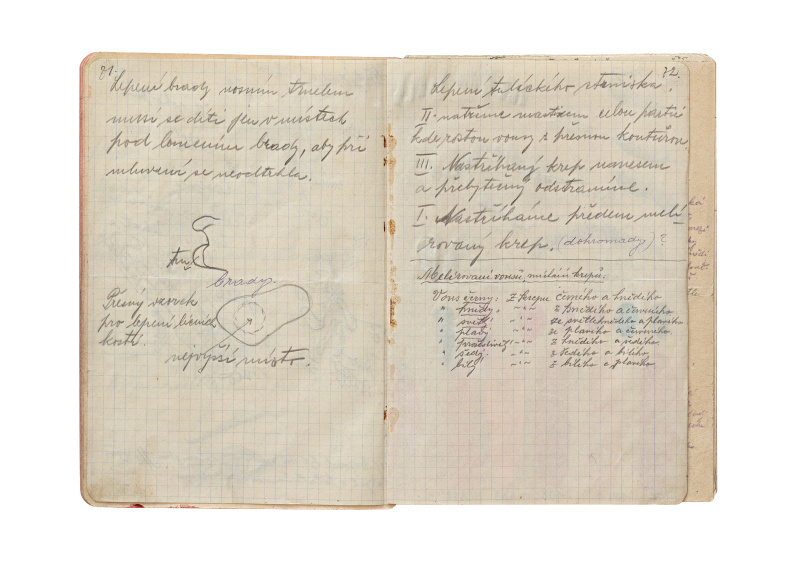 71.
Lepení brady nosním tmelem
musí se díti jen v místech
pod lomením brady, aby při
mluvení se neodtrhla.
tmel
brady.
Přesný vzorek
pro lepení lícních
kostí.
nejvyšší místo.
72.
Lepení tuláckého strniska.
II. natřeme mastixem celou partii
kde rostou vousy s přesnou konturou
III. Nastříhaný krep naneseme
a přebytečný odstraníme.
I. Nastříháme předem melí-
rovaný krep. (dohromady)?
Melírování vousů, míšení krepů:
Vous černý: z krepu černého a hnědého
" hnědý: -"- z hnědého a černého
" světlý -"- ze světlehnědého a plavého
" plavý -"- ze plavého a červeného
" prošedivělý -"- z hnědého a šedého
" šedý -"- z šedého a bílého
" bílý -"- z bílého a plavého